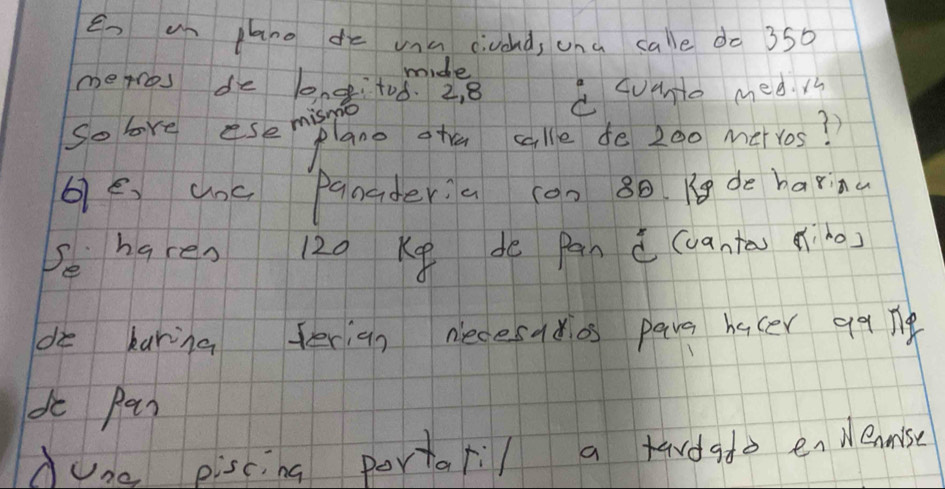 En un plano de una ciudad, una calle de 350
metros de longitud. mide 2,8 ¿ cuanto medira
sobre ese mismo plano otra calle de 200 metros?
b) En una Panaderia con 80. Kg de harina
se hacen 120 Kg de Pan ¿ Cuantos kilos
de harina serian necesarios para hacer 99 Kg
de Pan
d) una piscina portatil a tardado en llenarse